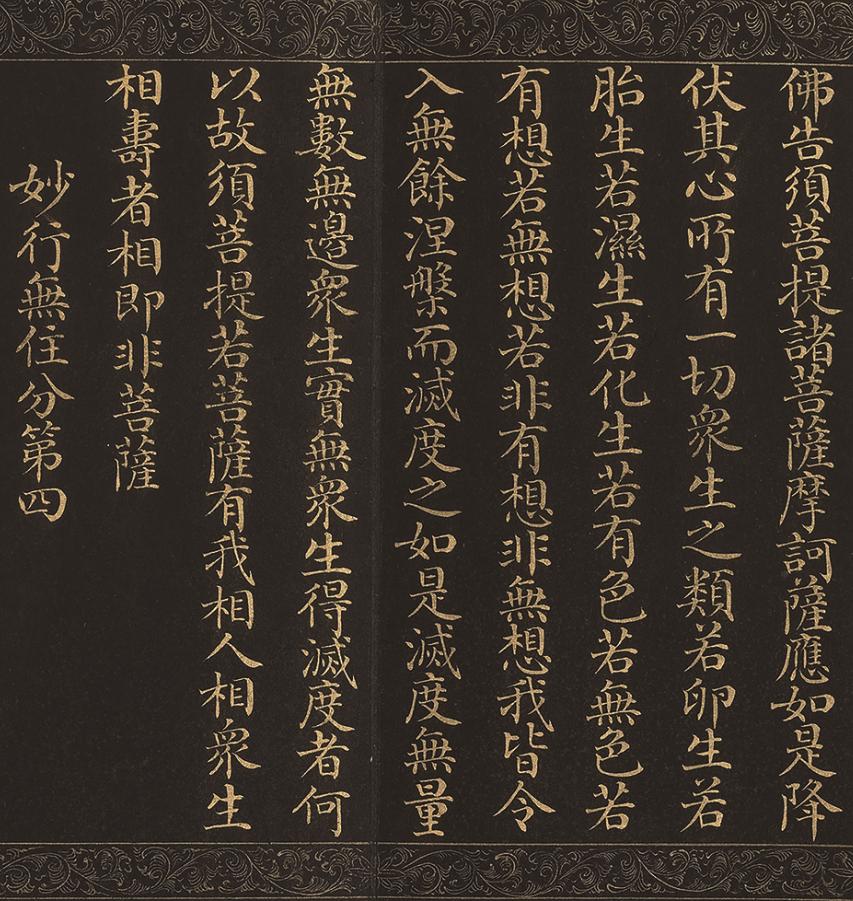 佛告須菩提諸菩薩摩訶薩應如是降
伏其心所有一切衆生之類若卵生若
胎生若濕生若化生若有色若無色若
有想若無想若非有想非無想我皆令
入無餘涅槃而滅度之如是滅度無量
無數無邊衆生實無衆生得滅度者何
以故須菩提若菩薩有我相人相衆生
相壽者相即非菩薩
妙行無住分第四